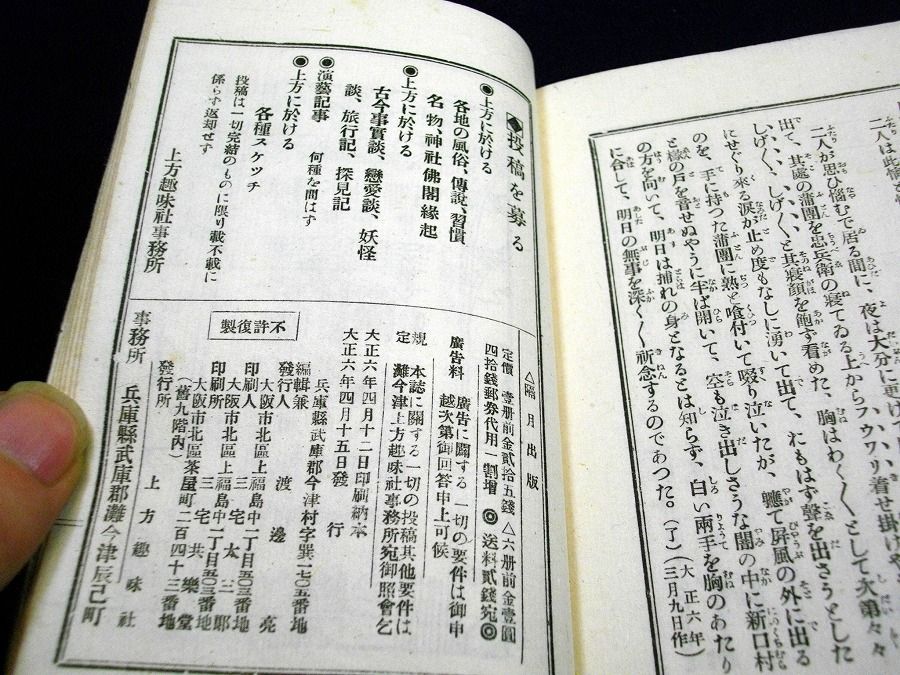 二人が思ひ悩むで居る間に、夜は大分に更けて、
二人が思ひ悩むで居る間に、夜は大分に更けて
出て、其處の蒲團を忠兵衛の寢てゐる上からフウワリ着せ掛けや
しげ〱、しげ〱と其寢顏を飽す看めた、胸はわく〱として次第々々
にせぐり來る涙が止め度もなしに湧いて出て、たもはず聲を出さうとした
のを、手に持つた蒲團に熟と喰付いて啜り泣いたが、軈て屏風の外に出る
と椽の戸を音せぬやうに半ば開いて、空も泣き出しさうな闇の中に新口村
の方を向いて、明日は捕れの身となるとは知らず、白い兩手を胸のあたり
に合して、明日の無事を深く〱祈念するのであつた。(了)(大正六年
三月九日作)
◆投稿を募る
●上方に於ける
各地の風俗、傳說、習慣
名物、神社佛閣緣起
●上方に於ける
古今事實談、戀愛談、妖怪
談、旅行記、探見記
●演藝記事 何種を問はず
●上方に於ける
各種スケッチ
投稿は一切完結のものに限り載不載に
係らず返却せず
上方趣味社事務所
△隔月出版
定價 壹册前金貳拾五錢 △六册前金壹圓
四拾錢郵券代用一割增 ◎送料貳錢宛◎
廣告料 廣告に關する一切の要件は御申
越次第御回答申上可候
規定 本誌に關する一切の投稿其他要件は
灘今津上方趣味社事務所宛御照會乞
大正六年四月十二日印刷納本
大正六年四月十五日發行
不許復製
兵庫縣武庫郡今津村字巽一七〇五番地
編輯兼發行人 渡邊亮
大阪市北區上福島中一丁目五〇三番地
印刷人 三宅太三郎
大阪市北區上福島中一丁目五〇三番地
印刷所 三宅共樂堂
大阪市北區茶屋町二百四十三番地
(舊九階内)
發行所 上方趣味社
事務所 兵庫縣武庫郡灘今津辰己町